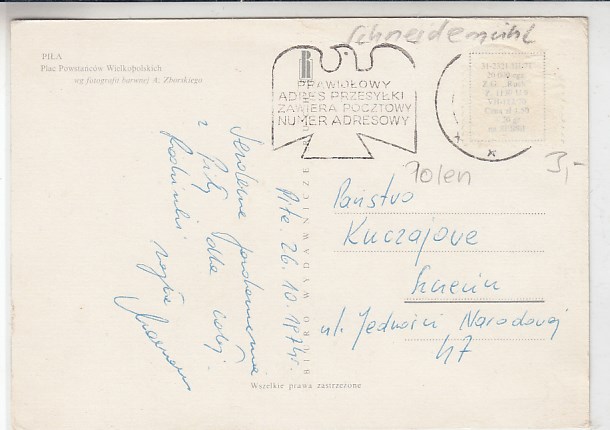 PIŁA
Plac Powstańców Wielkopolskich
wg fotografii barwnej A. Zborskiego
Schneidemühl
PRAWIDŁOWY
ADRES PRZESYŁKI
ZAWIERA POCZTOWY
NUMER ADRESOWY
Z.G. „Ruch"
Polen
3,-
Serdeczne pozdrowienia
z Piły dla całej
Rodzinki
Piła 26.10.1974r.
BIURO WYDAWNICZE RUCH
Państwo
Kuczajowe
Szczecin
ul. Jedności Narodowej
47
Wszelkie prawa zastrzeżone